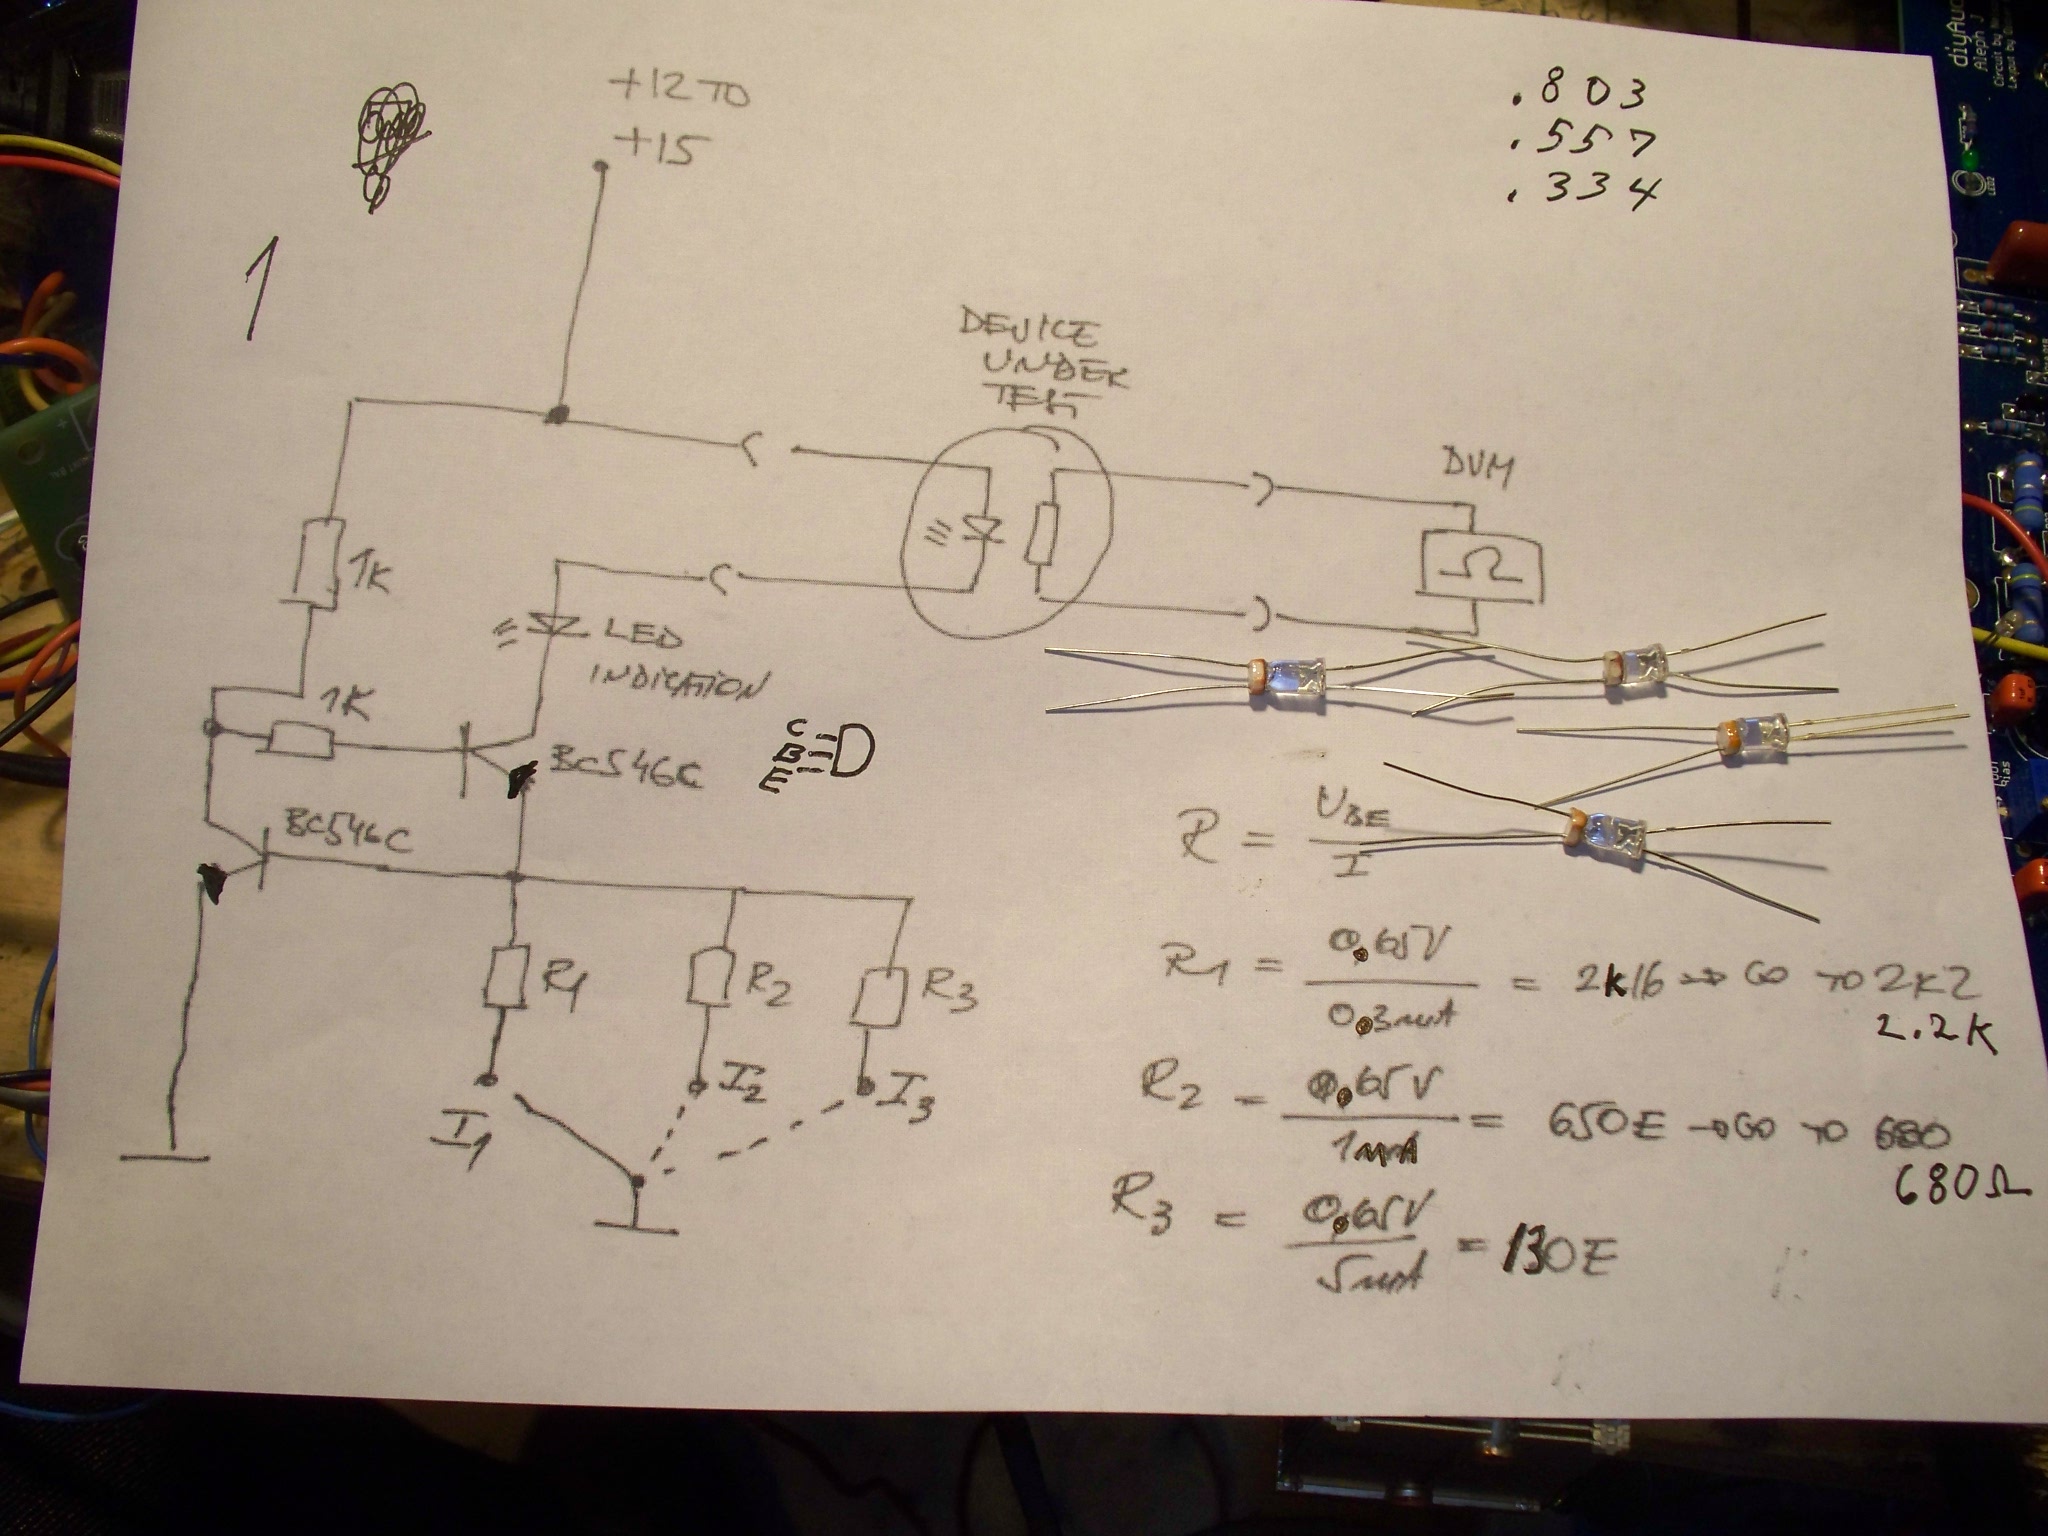 +12 TO
+15
.803
.557
.334
1
DEVICE
UNDER
TEST
DVM
Ω
1K
LED
INDICATION
1K
BC546C
C
B
E
BC546C
R1
R2
R3
I1
I2
I3
R = UBE / I
R1 = 0.65V / 0.3mA = 2K16 → GO TO 2K2
2.2K
R2 = 0.65V / 1mA = 650E → GO TO 680
680Ω
R3 = 0.65V / 5mA = 130E
diyAu
Aleph J
Circuit by
Layout by
LED2
Bias